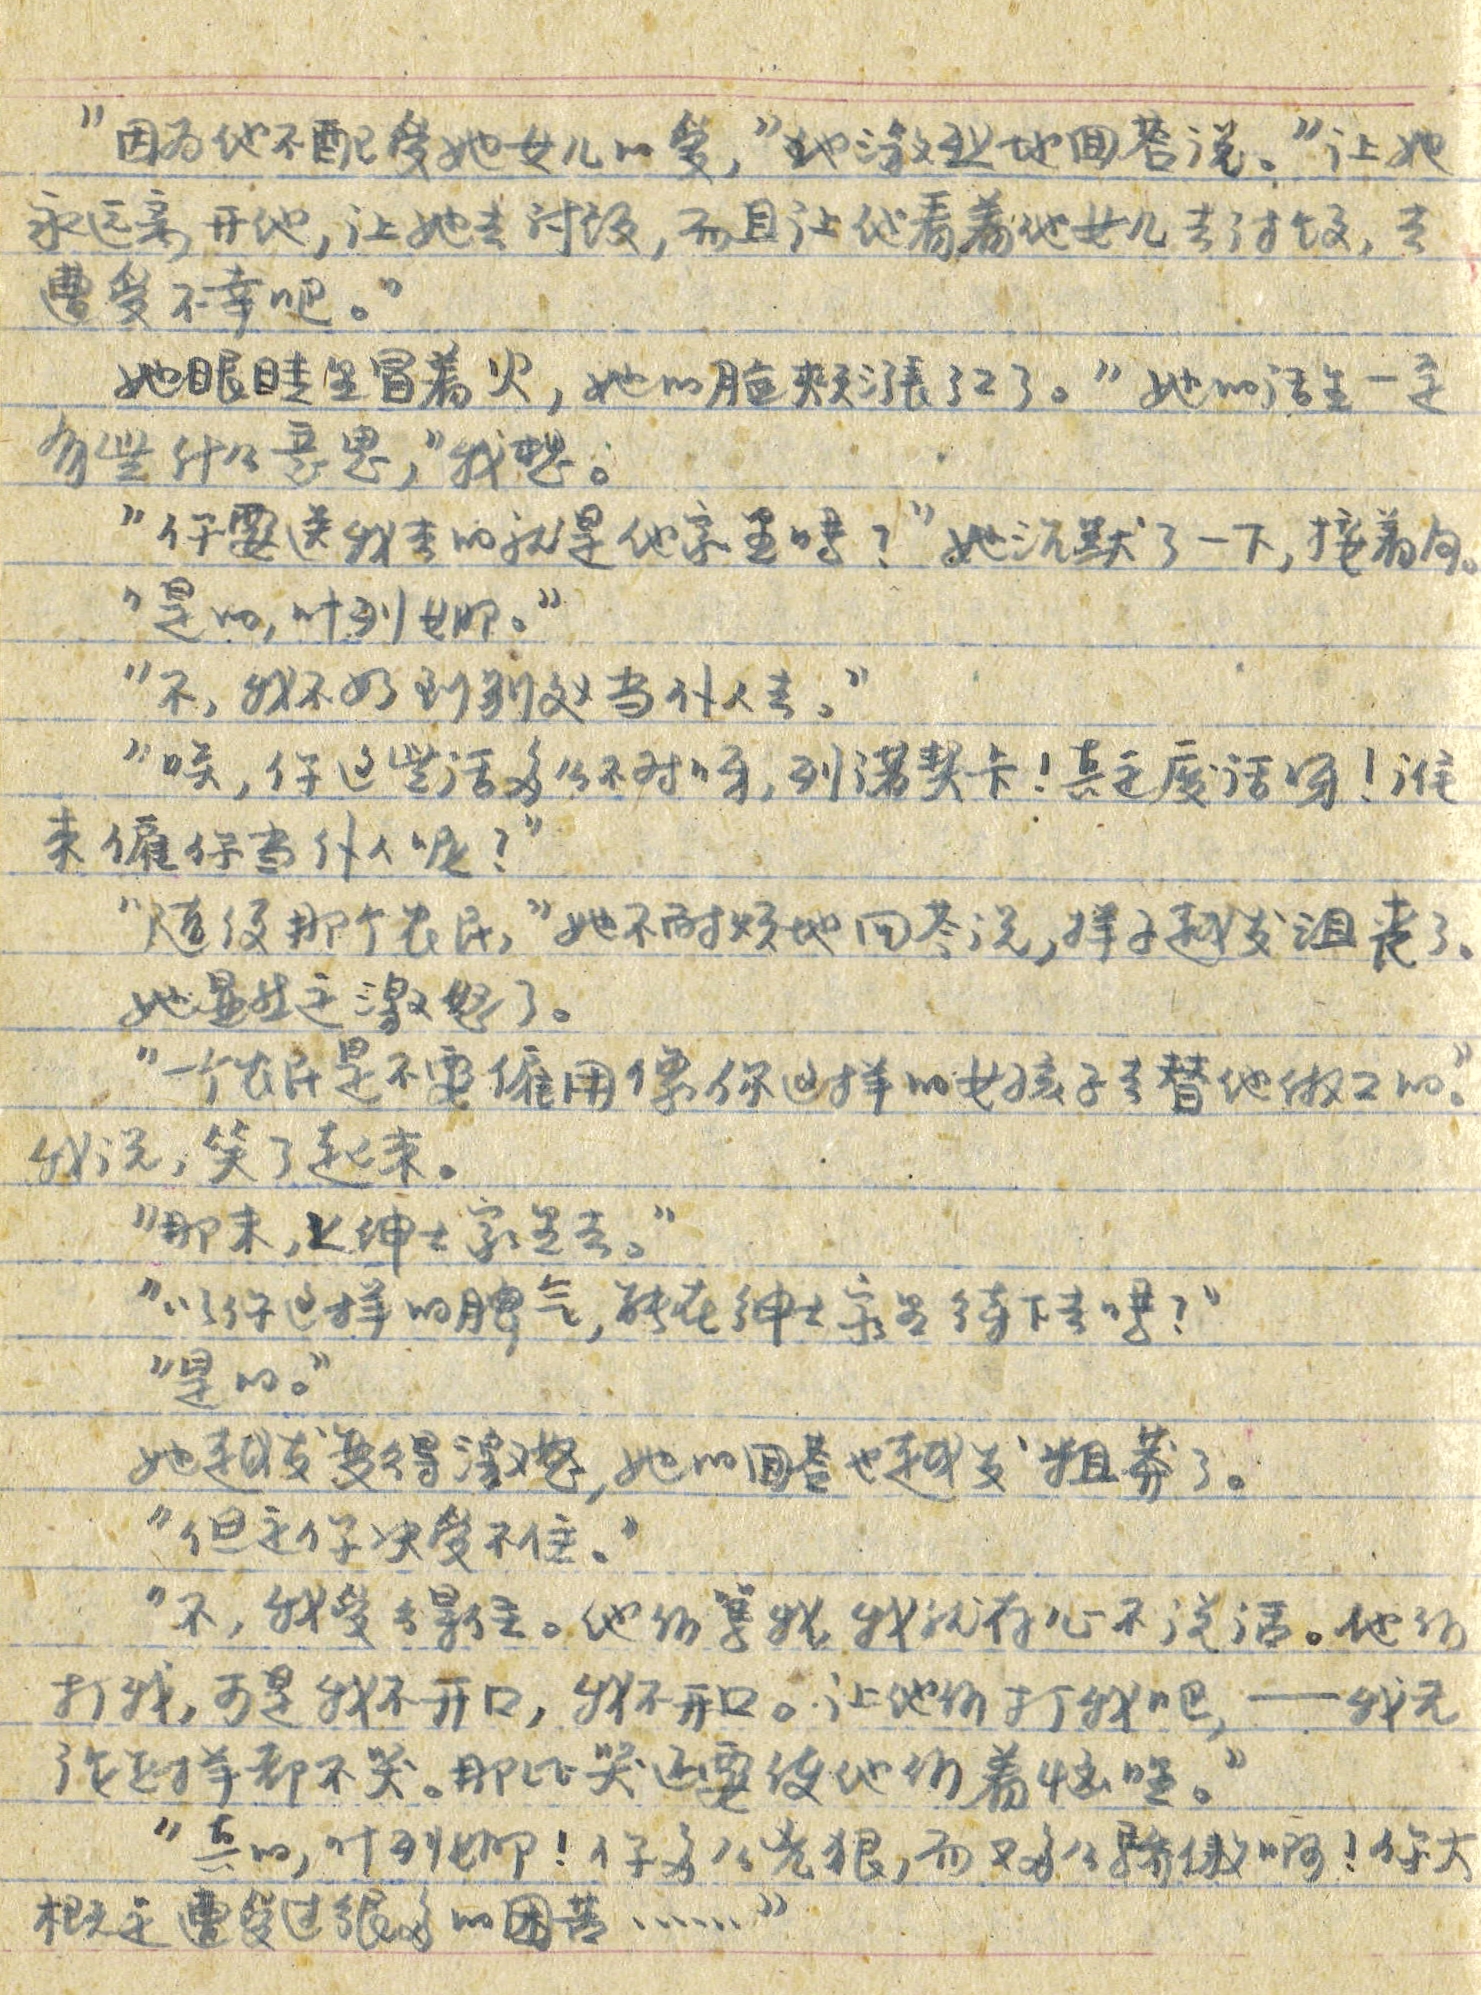 "因为他不配受她女儿的爱，"她激烈地回答说。"让她
永远离开他，让她去讨饭，而且让他看着他女儿去讨饭，去
遭受不幸吧。"
她眼睛里冒着火，她的脸颊漲红了。"她的话里一定
有些什么意思，"我想。
"你要送我去的就是他家里嗎？"她沉默了一下，接着问。
"是的，叶列娜。"
"不，我不如到别处当仆人去。"
"唉，你这些话多么不对呀，列諾契卡！真是废话呀！谁
来僱你当仆人呢？"
"随便那个农民，"她不耐烦地回答说，样子越发沮丧了。
她显然是激怒了。
"一个农民是不要僱用像你这样的女孩子去替他做工的。"
我说，笑了起来。
"那末，上绅士家里去。"
"以你这样的脾气，能在绅士家里待下去嗎？"
"是的。"
她越发变得激怒，她的回答也越发粗莽了。
"但是你决受不住。"
"不，我受得住。他们罵我，我就存心不说话。他们
打我，可是我不开口，我不开口。让他们打我吧，——我无
论怎样都不哭。那比哭还要使他们着恼哩。"
"真的，叶列娜！你多么凶狠，而又多么驕傲啊！你大
概是遭受过很多的困苦……"